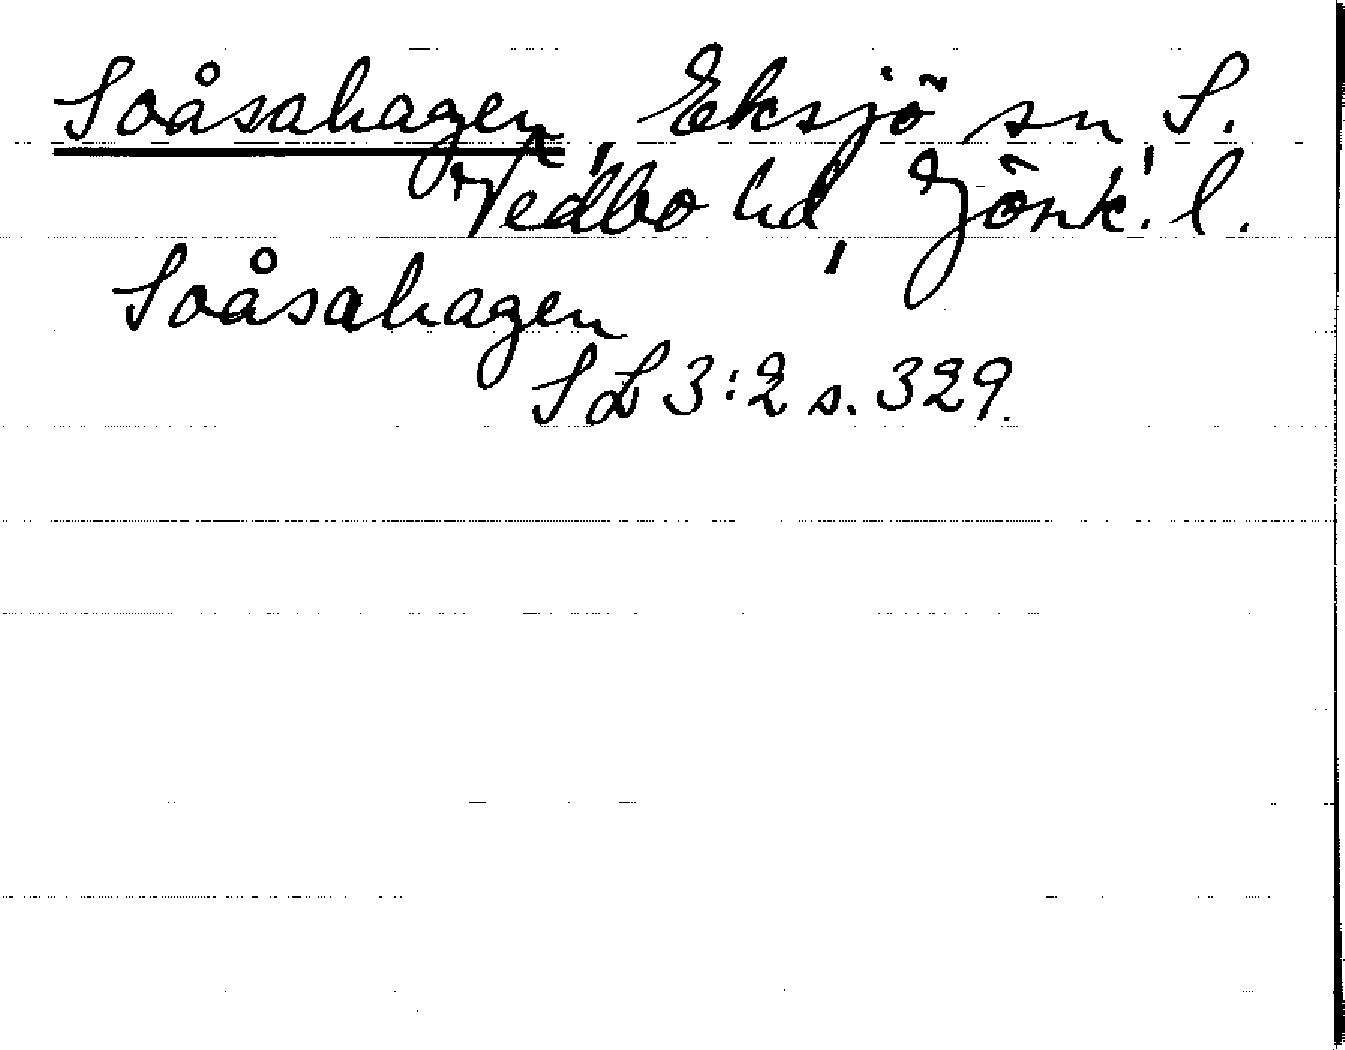 Soåsahagen, Eksjö sn S.
Vedbo hd, Jönk. l.
Soåsahagen
SL 3:2 s. 329.